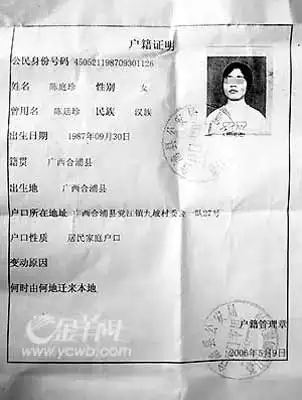 户籍证明
公民身份号码 450521198709301126
姓名 陈庭珍 性别 女
曾用名 陈廷珍 民族 汉族
出生日期 1987年09月30日
籍贯 广西合浦县
出生地 广西合浦县
户口所在地址 广西合浦县党江镇九坡村委 一队27号
户口性质 居民家庭户口
变动原因
何时由何地迁来本地
金羊网
www.ycwb.com
户籍管理章
2006年5月9日